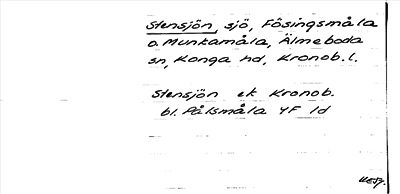 Stensjön, sjö, Fösingsmåla
o. Munkamåla, Älmeboda
sn, Konga hd, Kronob. l.
Stensjön ek Kronob.
bl. Pålsmåla YF 1d